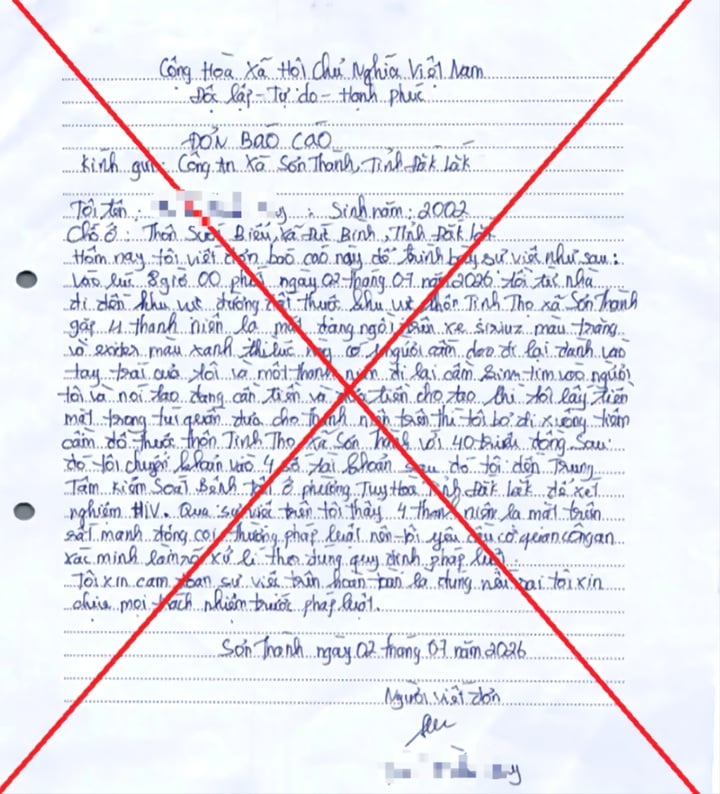 Công Hoà Xã Hội Chủ Nghĩa Việt Nam
Độc lập - Tự do - Hạnh phúc
ĐƠN BÁO CÁO
Kính gửi: Công an Xã Sơn Thành, Tỉnh Đắk Lắk
Tôi tên: y Sinh năm: 2002
Chỗ ở: Thôn Suối Biểu, Xã Đức Bình, Tỉnh Đắk Lắk
Hôm nay tôi viết đơn báo cáo này để trình bày sự việc như sau:
Vào lúc 8 giờ 00 phút ngày 02 tháng 07 năm 2026 tôi từ nhà
đi đến khu vực đường thuộc khu vực thôn Tịnh Thọ xã Sơn Thành
gặp 4 thanh niên lạ mặt đang ngồi trên xe siriuz màu trắng
và exider màu xanh thì lúc này có 1 người cầm dao đi lại đánh vào
tay trái của tôi và một thanh niên đi lại cầm tim vào người
tôi và nói tao đang cần tiền và tiền cho tao thì tôi lấy tiền
mặt trong túi quần đưa cho thanh niên trên thì tôi bỏ đi xuống tiệm
cầm đồ thuộc thôn Tịnh Thọ xã Sơn Thành với 40 triệu đồng sau
đó tôi chuyển khoản vào 4 số tài khoản sau đó tôi đến Trung
Tâm Kiểm Soát Bệnh tật ở phường Tuy Hoà Tỉnh Đắk Lắk để xét
nghiệm HIV. Qua sự việc trên tôi thấy 4 thanh niên lạ mặt trên
rất manh động coi thường pháp luật nên yêu cầu cơ quan công an
xác minh làm rõ xử lí theo đúng quy định pháp luật
Tôi xin cam đoan sự việc trên hoàn toàn là đúng nếu sai tôi xin
chịu mọi trách nhiệm trước pháp luật.
Sơn Thành ngày 02 tháng 07 năm 2026
Người viết đơn